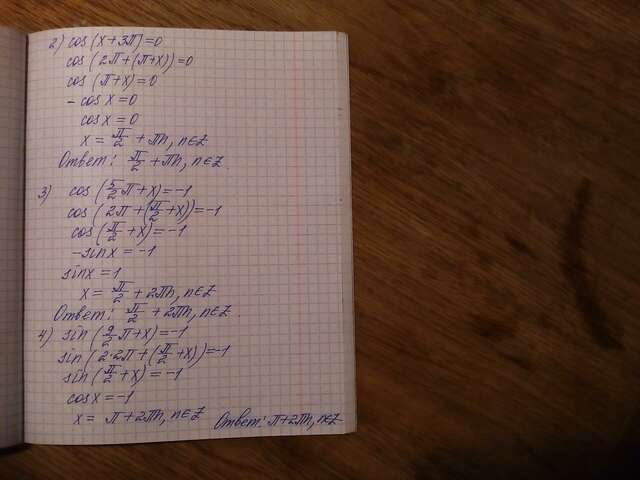 2) cos(x+3π)=0
cos(2π+(π+x))=0
cos(π+x)=0
-cosx=0
cosx=0
x=π/2+πn, n∈Z
Ответ: π/2+πn, n∈Z.
3) cos(5/2π+x)=-1
cos(2π+(π/2+x))=-1
cos(π/2+x)=-1
-sinx=-1
sinx=1
x=π/2+2πn, n∈Z
Ответ: π/2+2πn, n∈Z.
4) sin(9/2π+x)=-1
sin(2·2π+(π/2+x))=-1
sin(π/2+x)=-1
cosx=-1
x=π+2πn, n∈Z Ответ: π+2πn, n∈Z